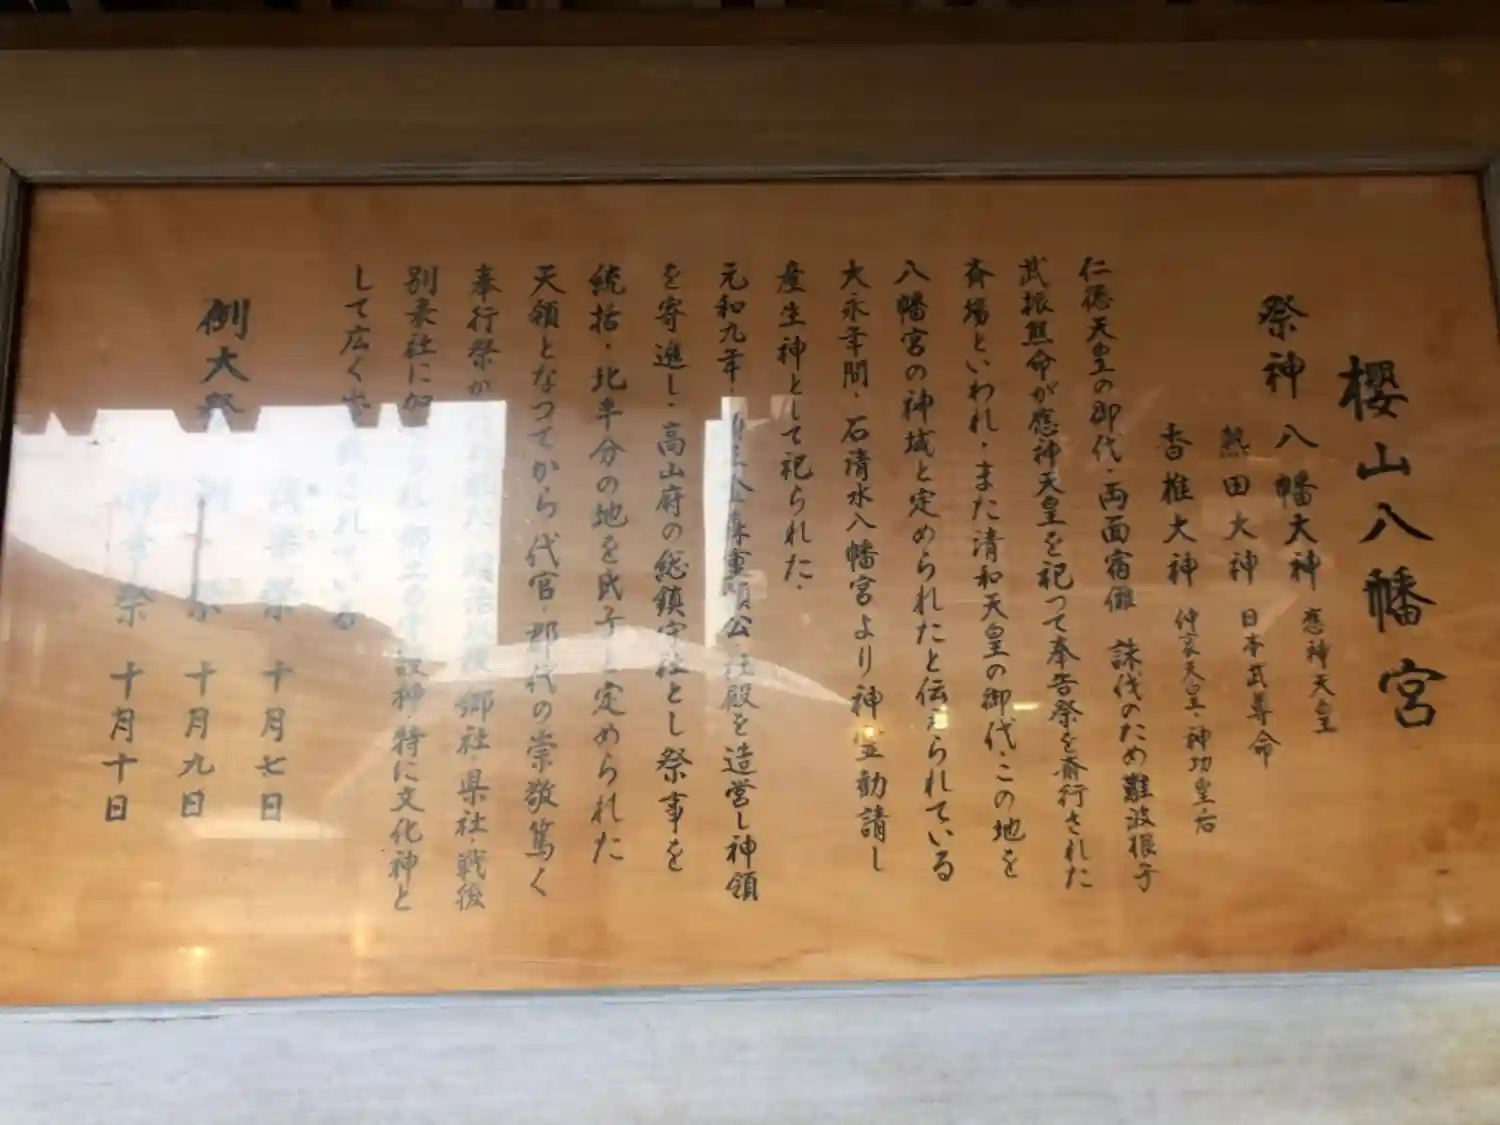 櫻山八幡宮
祭神 八幡大神 應神天皇
熱田大神 日本武尊命
香椎大神 仲哀天皇・神功皇后
仁徳天皇の御代・両面宿儺 誅伐のため難波根子
武振熊命が應神天皇を祀つて奉告祭を斎行された
斉場といわれ・また清和天皇の御代・この地を
八幡宮の神域と定められたと伝えられている
大永年間・石清水八幡宮より神霊勧請し
産生神として祀られた・
元和九年・金森重頼公・社殿を造営し神領
を寄進し・高山府の総鎮守社とし祭事を
統括・北半分の地を氏子と定められた
天領となつてから代官・郡代の崇敬篤く
奉行祭が 郷社・県社・戦後
別表社に加 神・特に文化神と
して広く されている
例大祭
祭 十月七日
例 祭 十月九日
神幸祭 十月十日